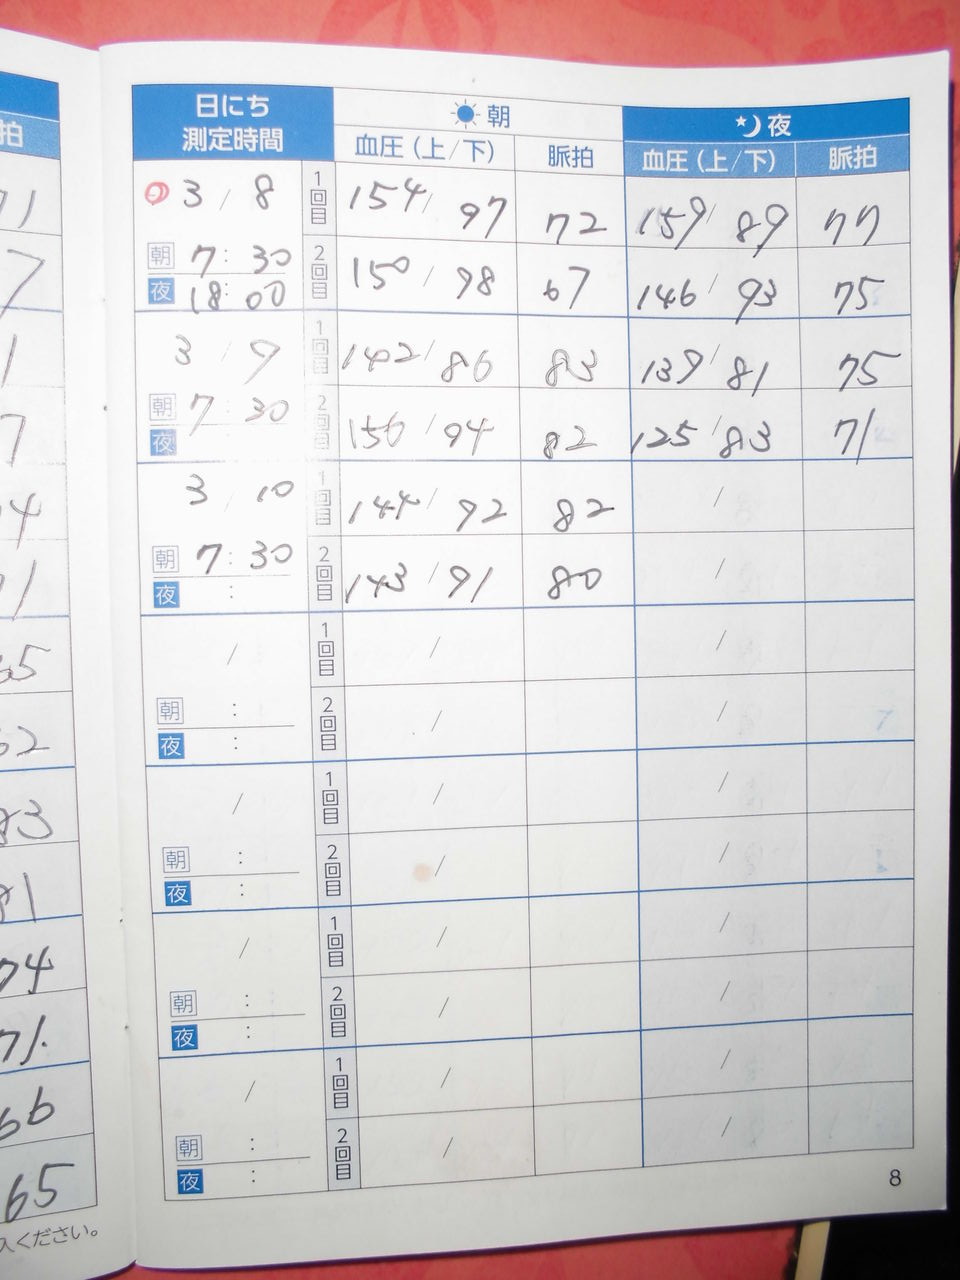 拍
71
7
1
7
4
1
65
62
83
81
74
71.
66
65
入ください。
日にち
測定時間
朝
血圧（上/下） 脈拍
夜
血圧（上/下） 脈拍
3 / 8 1回目 154/ 97 72 159/ 89 77
朝 7: 30
夜 18:00 2回目 150 / 98 67 146/ 93 75
3 / 9 1回目 142/ 86 83 139/ 81 75
朝 7: 30
夜 : 2回目 156 / 94 82 125 /83 71
3 / 10 1回目 144/ 92 82 /
朝 7: 30
夜 : 2回目 143 / 91 80 /
/ 1回目 / /
朝 :
夜 : 2回目 / /
/ 1回目 / /
朝 :
夜 : 2回目 / /
/ 1回目 / /
朝 :
夜 : 2回目 / /
/ 1回目 / /
朝 :
夜 : 2回目 / /
8